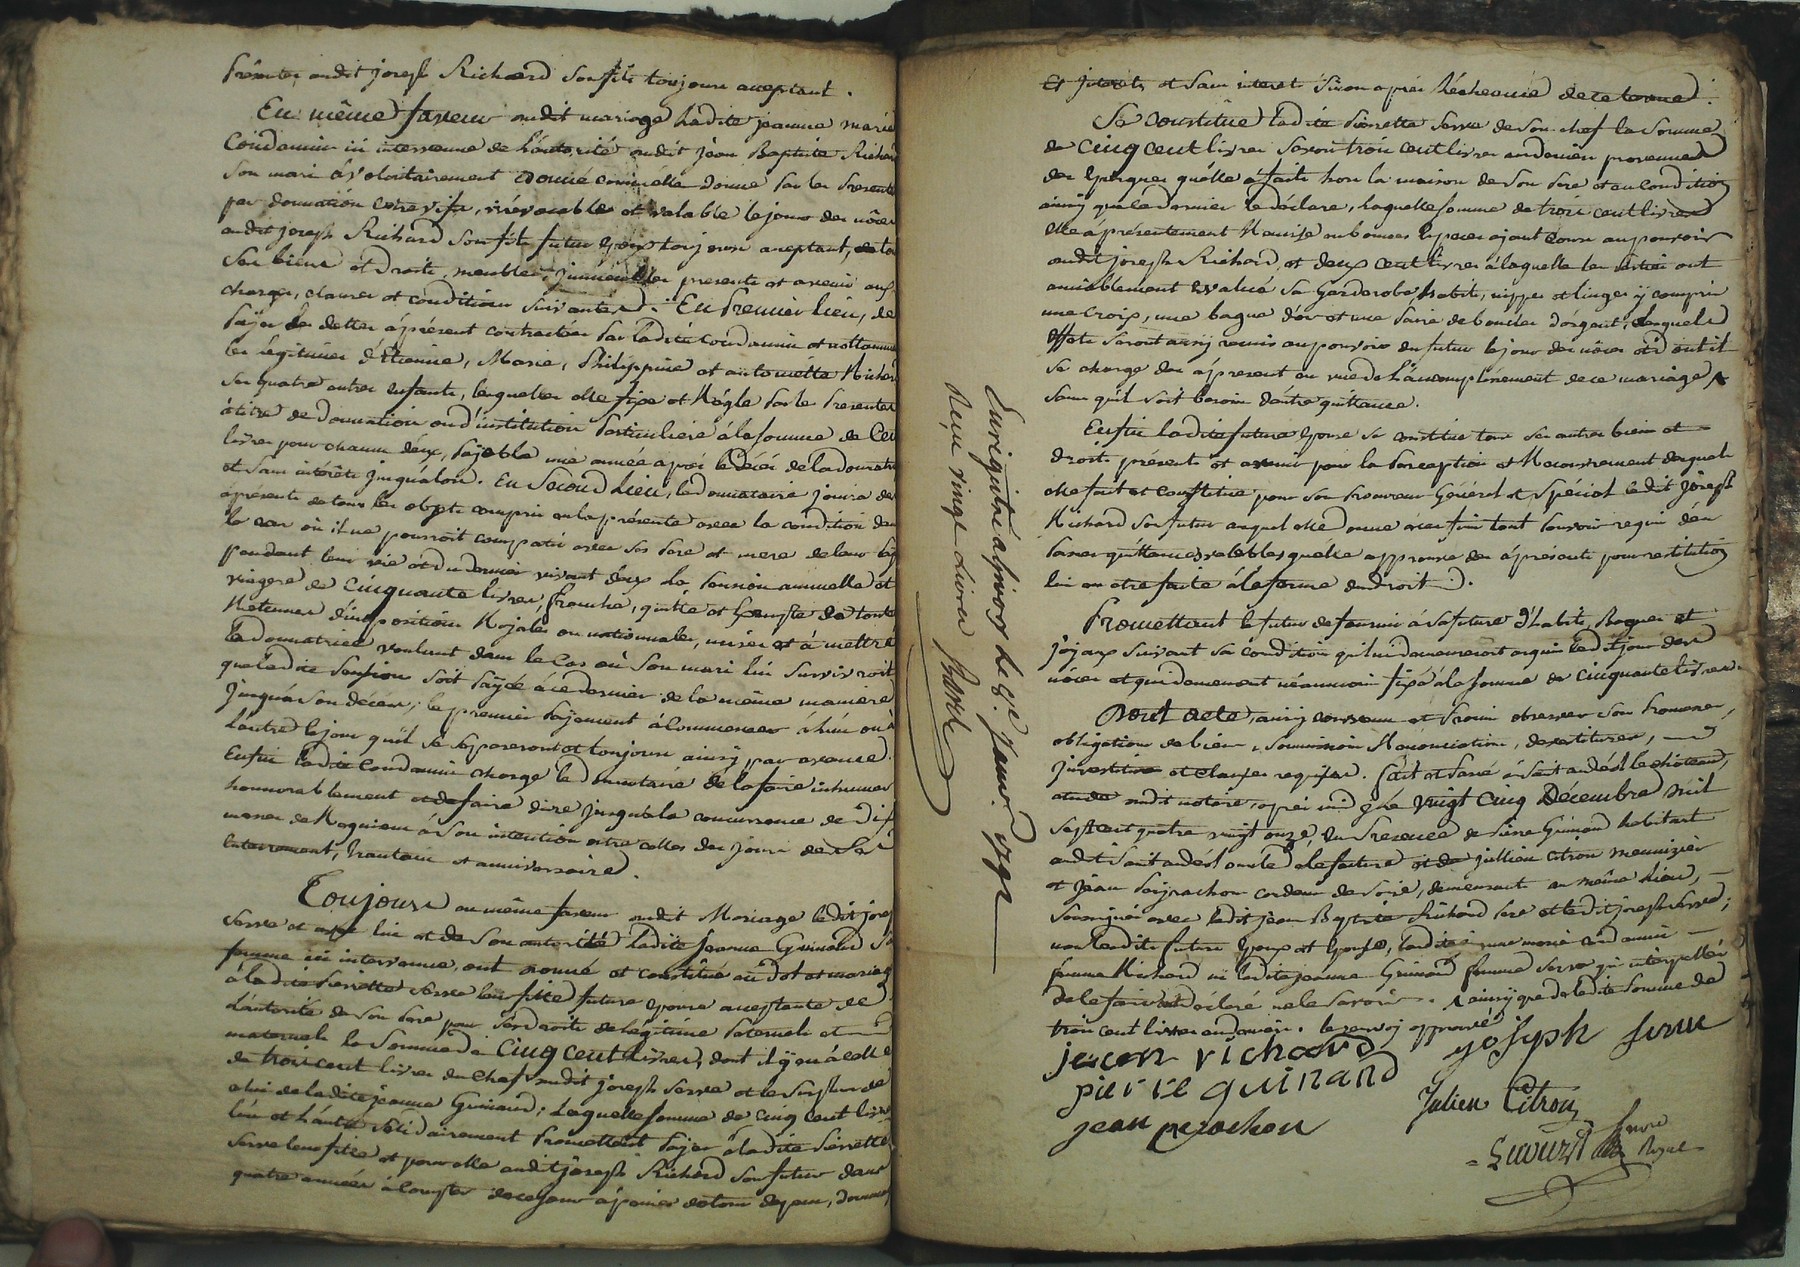 présentes audit joseph Richard son fils toujours acceptant.
En même faveur audit mariage Ladite jeanne marie
Coudannin ici intervenue de L'autorité audit jean Baptiste Richard
son mari a volontairement donné comme elle donne par les presentes
par donnation entre vifs, irrévocable et valable le jour des nôces
audit joseph Richard son fils futur epoux toujours acceptant, de tous
ses biens et droits, meubles, immeubles presents et avenir aux
charges, clauses et conditions suivantes. En Premier lieu, de
payer les dettes à présent contractées par ladite Coudannin et nottamment
les legitimes d'Etienne, Marie, Philippine et antoinette Richard
ses quatre autres enfants, lesquelles elle fixe et Règle par les presentes
à titre de donnation ou d'institution particuliere à la somme de Cent
livres pour chacun d'eux, payable une année après le décès de la donnatrice
et sans intérêts jusqu'alors. En Second Lieu, le donnataire jouira dès
à présent de tous les objets compris en la présente avec la condition
le cas où il ne pourroit compatir avec ses pere et mere de leur payer
pendant leur vie et du dernier vivant d'eux La pension annuelle et
viagere de Cinquante livres, franche, quitte et exempte de toute
Retenues d'impositions Royales ou nationnales, mises et à mettre
la donnatrice voulant dans le Cas où Son mari lui survivroit
que ladite pension soit payée à ce dernier de la même maniere
jusqu'à son décès; le premier payement à Commencer
le jour qu'il se sépareront et toujours ainsy par avance.
Enfin ladite Coudannin charge le donnataire de la faire inhumer
honnorablement et de faire dire jusqu'à la concurrance de dix
messes de Requiem à son intention outre celles des jours de ses
Enterrement, trantain et anniversaire.
Toujours au même faveur audit Mariage ledit joseph
Serve et avec lui et de son autorité Ladite Jeanne Guinand Sa
femme ici intervenue, ont donné et constitué en dot et mariage
à ladite Pierrette Serve leur fille future epouse acceptante de
L'autorité de son pere pour ses droits de legitime paternels et
maternels la Somme de Cinq Cent livres, dont il y en a celle
de trois cent livres du Chef audit joseph Serve et le surplus de
celui de ladite jeanne Guinand; Laquelle somme de cinq cent livres
l'un et l'autre solidairement Promettent payer à ladite Pierrette
Serve leur fille et pour elle audit joseph Richard son futur dans
quatre années à Compter de ce jour à peine de tous depens, dommages
et jnterêts et sans interet sinon après L'écheance de ce terme.
Se constitue ladite Pierrette Serve de son chef la Somme
de Cinq cent livres Savoir trois cent livres en deniers provenus
des epargnes qu'elle a faite hors la maison de Son Pere et en condition
ainsy que ce dernier le déclare, laquelle somme de trois cent livres
elle a présentement Remise en bonnes especes ayant cours au pouvoir
audit joseph Richard, et deux cent livres à laquelle les parties ont
amiablement évalué Sa Garderobe habits, nippes et linges y compris
une croix, une bague d'or et une Paire de boucles d'argent, lesquels
effets seront aussy remis au pouvoir du futur le jour des nôces
se charge dès àpresent en vue de L'accomplissement de ce mariage
sans qu'il soit besoin d'autre quittance.
Enfin ladite future epouse se constitue tous ses autres biens et
droits présents et avenir pour la Perception et Recouvrement desquels
elle fait et constitue pour son Procureur Général et Spécial ledit joseph
Richard son futur auquel elle donne à ces fins tout Pouvoir requis d'en
Passer quittances valables qu'elle approuve dès àprésent pour restitution
lui en etre faite à la forme du Droit.
Promettant le futur de fournir à sa future d'habits, Bagues et
joyaux suivant sa condition qu'lui demeureront acquis ledit jour des
nôces et qui demeurent néanmoins fixé à la somme de Cinquante livres.
Dont Acte, ainsy convenu et Promis observer sous Promesse,
obligation de biens, soumission Renonciation,
jnvestiture et clauses requises. fait et Passé à Saint andéol le château,
etude audit notaire, après midy Le vingt Cinq Décembre mil
sept cent quatre vingt onze, En Presence de Pierre Guinand habitant
audit Saint andéol et de jullien citron meunizier
et jean Peyrachon cordeur de Soie, demeurant au même Lieu,
soussignés avec ledit jean Baptiste Richard pere et ledit joseph Serve;
non lesdits futurs Epoux et Epouse, ladite jeanne marie Coudannin
femme Richard ni ladite jeanne Guinand femme Serve qui interpellés
de le faire ont déclaré ne le savoir. ainsy que de ladite Somme de
trois cent livres en deniers. le renvoi approuvé
jean richard
joseph serve
pierre guinand
Julien Citron
jean perachon
Royal
Enrégistré à Givors le 8e Janv. 1792
Reçu vingt Livres